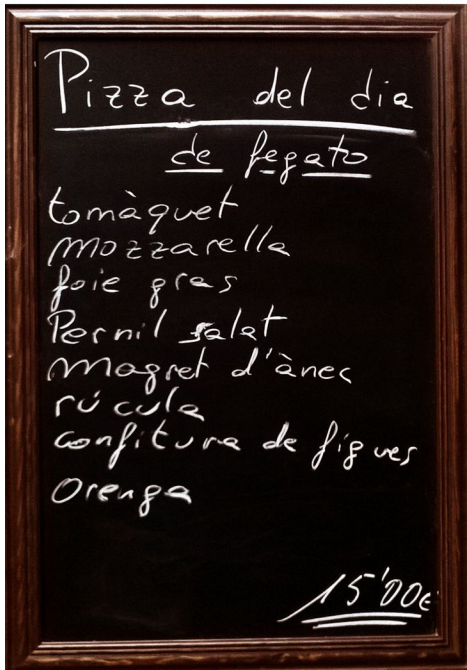 Pizza del dia
de fegato
tomàquet
mozzarella
foie gras
Pernil salat
Magret d'ànec
rúcula
confitura de figues
Orenga
15'00€